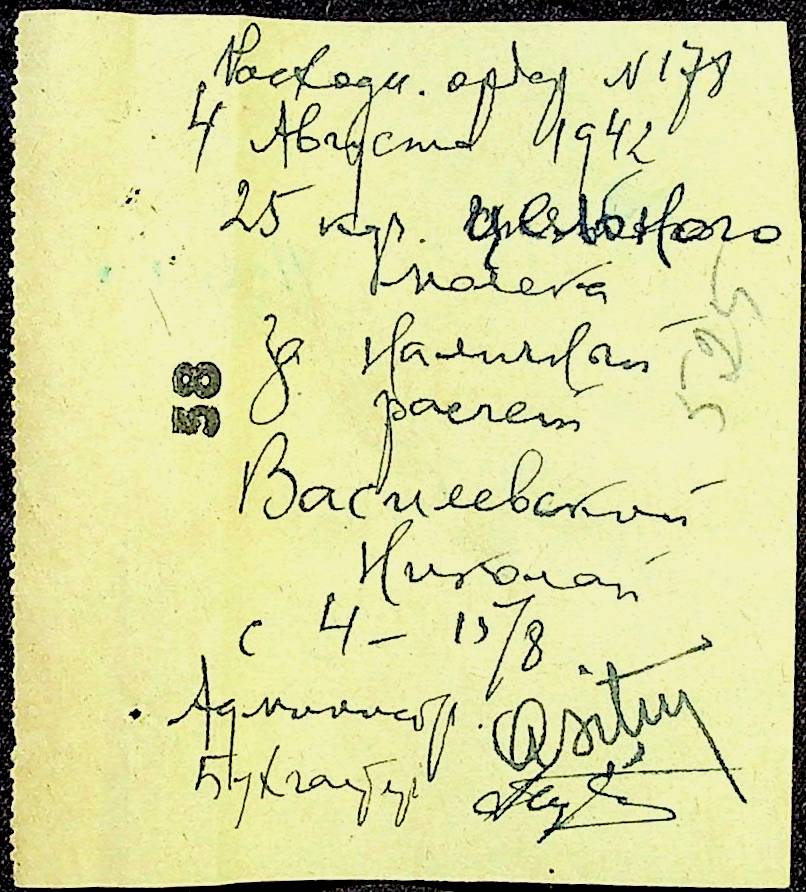 Расходн. ордер N 178
4 Августа 1942
25 клгр. цельного
молока
За наличный
расчет
Василевский
Николай
с 4 – 15/8
Администр.
Бухгалтер
58
525